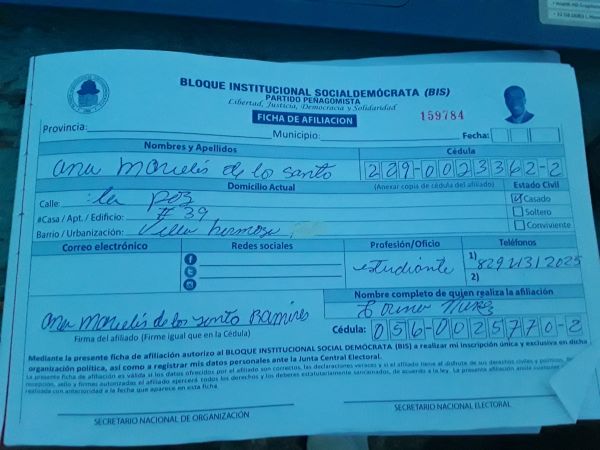 BLOQUE INSTITUCIONAL SOCIALDEMÓCRATA (BIS)
PARTIDO PEÑAGOMISTA
Libertad, Justicia, Democracia y Solidaridad
FICHA DE AFILIACION
159784
Provincia:
Municipio:
Fecha:
Nombres y Apellidos
Cédula
Ana Marielis de lo santo
229-0023362-2
Domicilio Actual
(Anexar copia de cédula del afiliado)
Estado Civil
Calle: la paz
Casado
#Casa / Apt. / Edificio: # 39
Soltero
Barrio / Urbanización: Villa hermosa
Conviviente
Correo electrónico
Redes sociales
Profesión/Oficio
Teléfonos
estudiante
1) 829 2131 2025
2)
Nombre completo de quien realiza la afiliación
Ana Marielis de los santo Ramires
Firma del afiliado (Firme igual que en la Cédula)
Cédula: 056-0025770-2
Mediante la presente ficha de afiliación autorizo al BLOQUE INSTITUCIONAL SOCIAL DEMÓCRATA (BIS) a realizar mi inscripción única y exclusiva en dicha
organización política, así como a registrar mis datos personales ante la Junta Central Electoral.
La presente ficha de afiliación es válida si los datos ofrecidos por el afiliado son correctos, las declaraciones veraces y si el afiliado tiene el disfrute de sus derechos civiles y políticos.
realizada con anterioridad a la fecha que aparece en esta ficha.
SECRETARIO NACIONAL DE ORGANIZACIÓN
SECRETARIO NACIONAL ELECTORAL